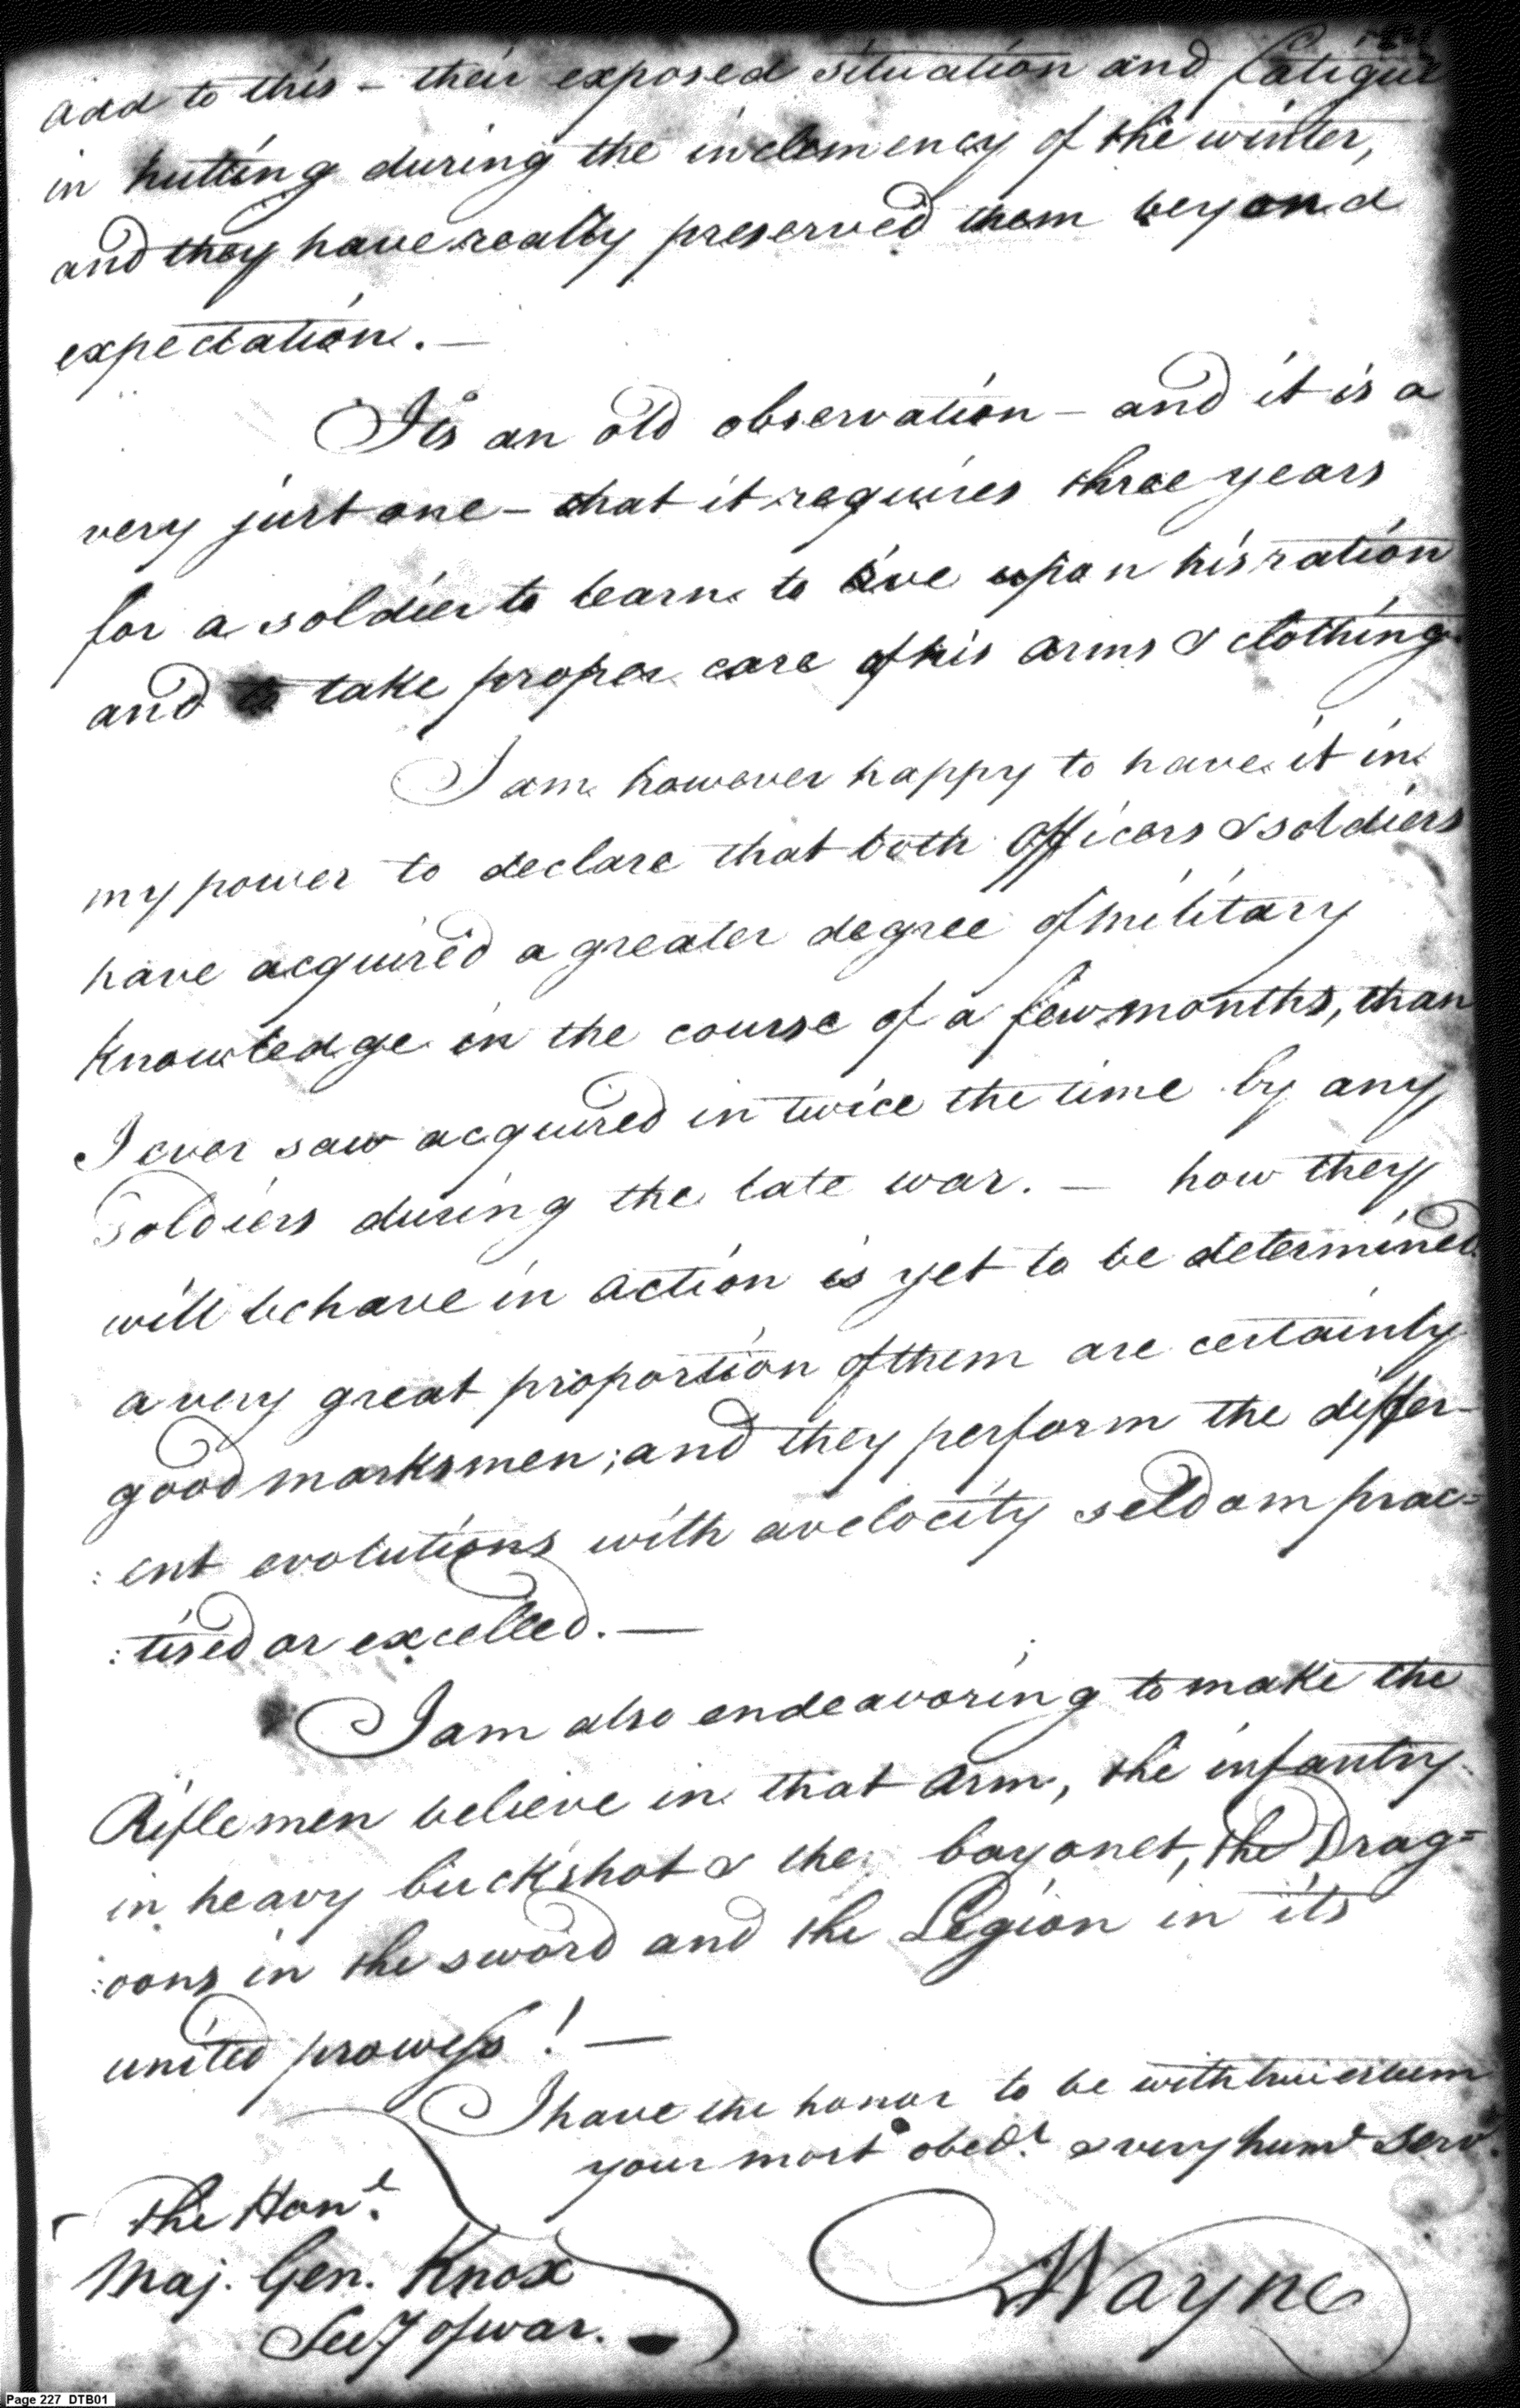 add to this – their exposed situation and fatigue
in hutting during the inclemency of the winter,
and they have really preserved them beyond
expectation. —
It is an old observation – and it is a
very just one – that it requires three years
for a soldier to learn to live upon his ration
and to take proper care of his arms & clothing
I am however happy to have it in
my power to declare that both officers & soldiers
have acquired a greater degree of military
knowledge in the course of a few months, than
I ever saw acquired in twice the time by any
Soldiers during the late war. — how they
will behave in action is yet to be determined
a very great proportion of them are certainly
good marksmen; and they perform the differ-
:ent evolutions with a velocity seldom prac=
:tised or excelled. —
I am also endeavoring to make the
Riflemen believe in that arm, the infantry
in heavy buckshot & the bayonet, the Drag=
:oons in the sword and the Legion in its
united prowess! —
I have the honor to be with true esteem
your most obed.t & very hum.l Serv.
The Hon.l
Maj. Gen. Knox
Sec'y of war.
A Wayne
Page 227 DTB01